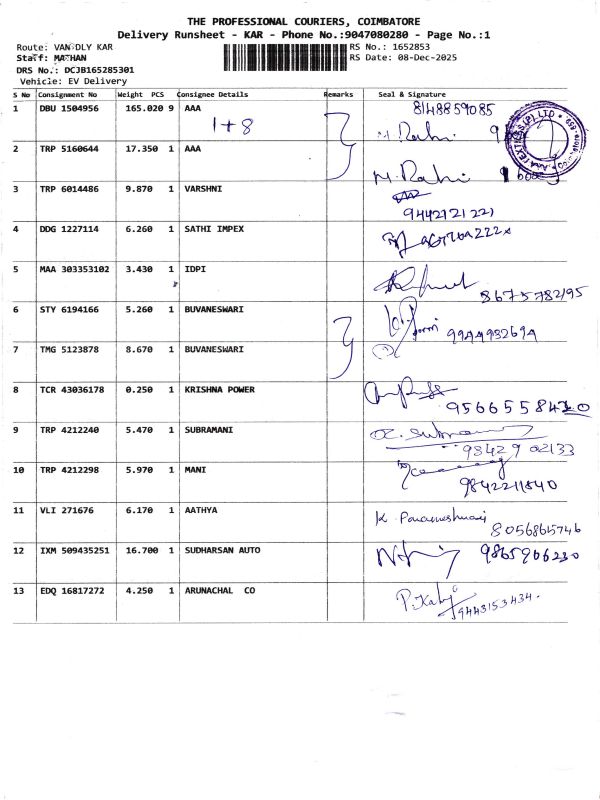 THE PROFESSIONAL COURIERS, COIMBATORE
Delivery Runsheet - KAR - Phone No.:9047080280 - Page No.:1
Route: VAN DLY KAR
RS No.: 1652853
Staff: MATHAN
RS Date: 08-Dec-2025
DRS No.: DCJB165285301
Vehicle: EV Delivery
S No Consignment No Weight PCS Consignee Details Remarks Seal & Signature
1 DBU 1504956 165.020 9 AAA 8148859085
1 + 8
2 TRP 5160644 17.350 1 AAA
3 TRP 6014486 9.870 1 VARSHNI
9442121221
4 DDG 1227114 6.260 1 SATHI IMPEX
5 MAA 303353102 3.430 1 IDPI
8675782195
6 STY 6194166 5.260 1 BUVANESWARI
9944932694
7 TMG 5123878 8.670 1 BUVANESWARI
8 TCR 43036178 0.250 1 KRISHNA POWER
9566558420
9 TRP 4212240 5.470 1 SUBRAMANI
9842902133
10 TRP 4212298 5.970 1 MANI
9842211840
11 VLI 271676 6.170 1 AATHYA K. Parameshwari
8056865746
12 IXM 509435251 16.700 1 SUDHARSAN AUTO 9865966230
13 EDQ 16817272 4.250 1 ARUNACHAL CO
9443153434.